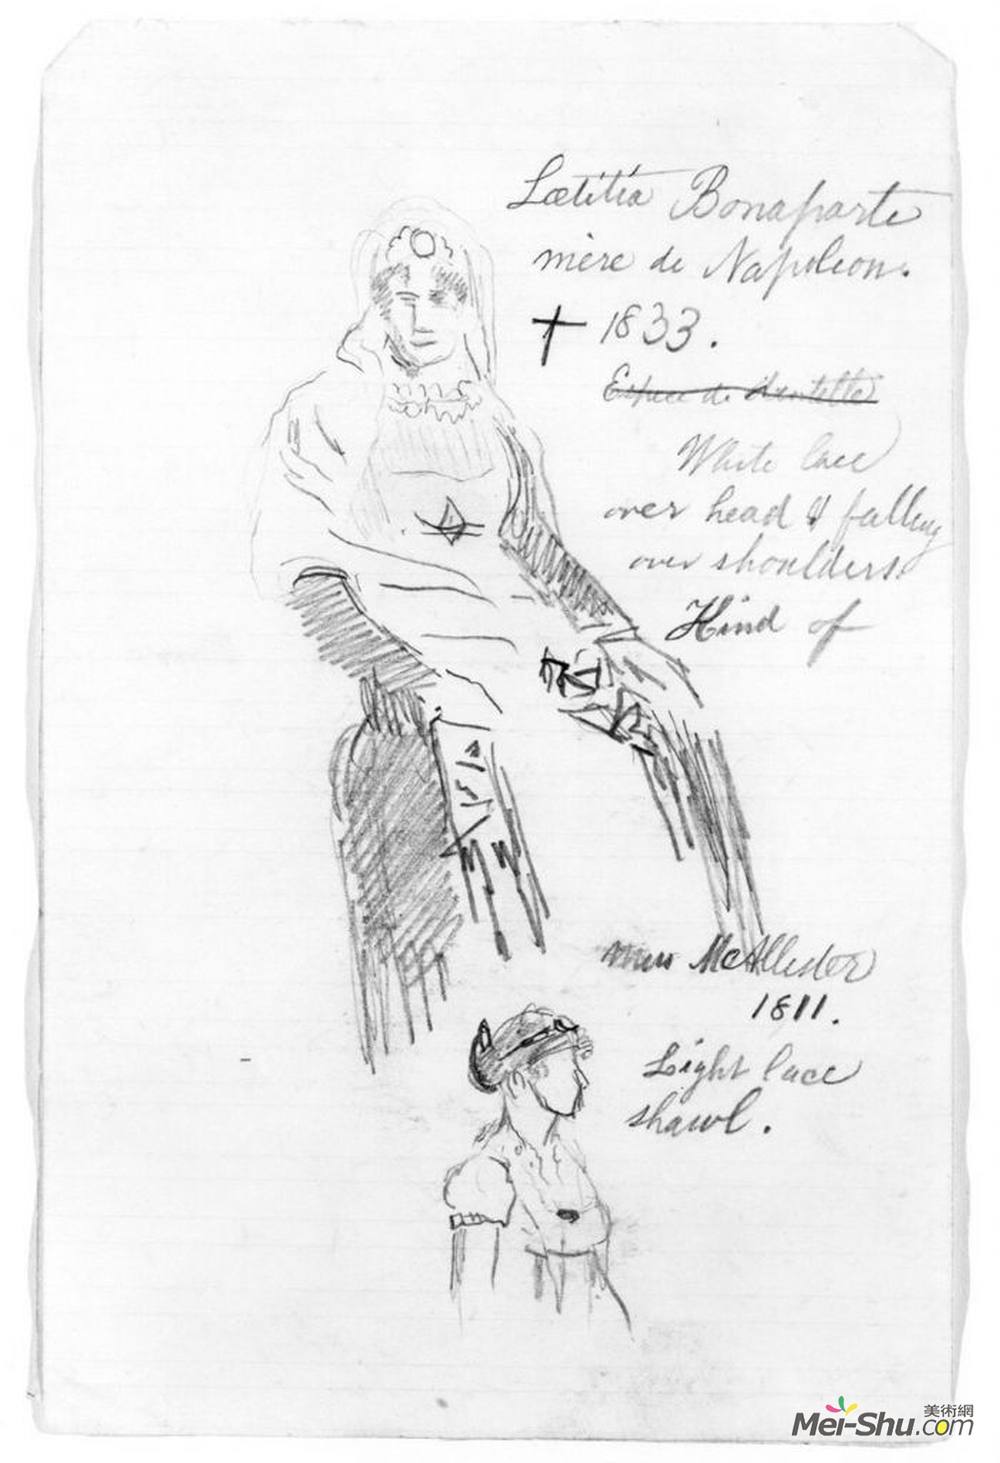 Lætitia Bonaparte
mère de Napoleon.
† 1833.
Espece de dentelle
White lace
over head & falling
over shoulders.
Kind of
Miss McAllister
1811.
Light lace
shawl.
美術網
Mei-Shu.com